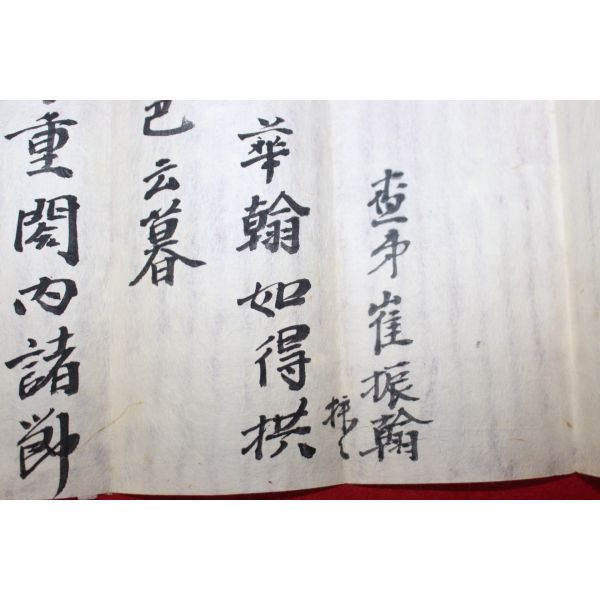 查弟崔振翰
華翰如得拱
巴云暮
重閤內諸節